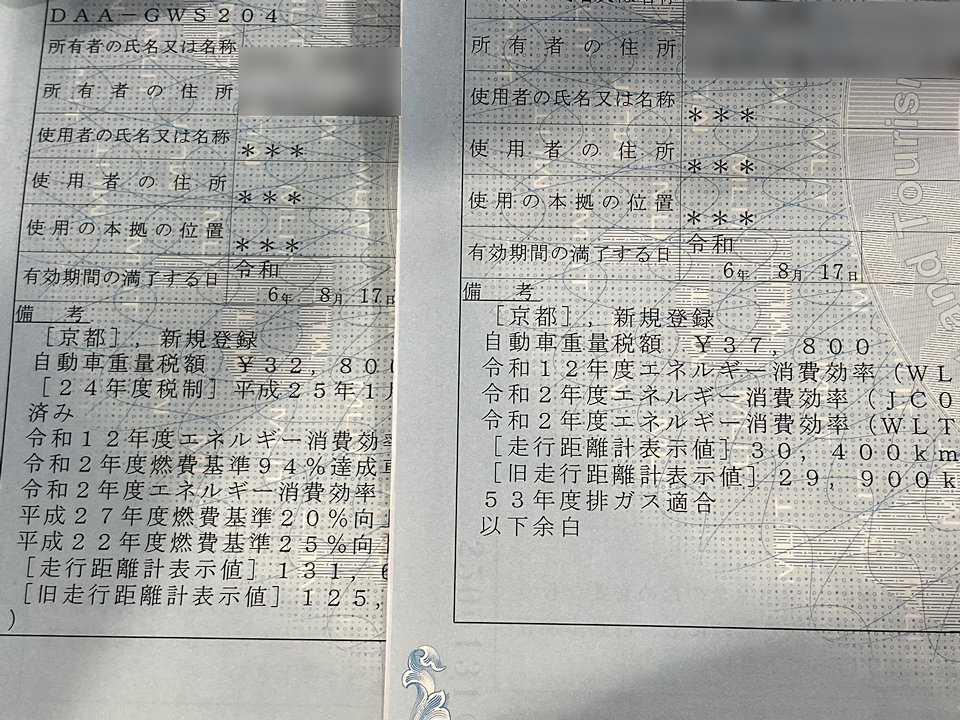 DAA-GWS204
所有者の氏名又は名称
所有者の住所
使用者の氏名又は名称
***
使用者の住所
***
使用の本拠の位置
***
有効期間の満了する日
令和
6年 8月 17日
備考
[京都],新規登録
自動車重量税額 ¥32,800
[24年度税制]平成25年1月
済み
令和12年度エネルギー消費効率
令和2年度燃費基準94%達成車
令和2年度エネルギー消費効率
平成27年度燃費基準20%向上
平成22年度燃費基準25%向上
[走行距離計表示値]131,6
[旧走行距離計表示値]125,
)
所有者の住所
使用者の氏名又は名称
***
使用者の住所
***
使用の本拠の位置
***
有効期間の満了する日
令和
6年 8月 17日
備考
[京都],新規登録
自動車重量税額 ¥37,800
令和12年度エネルギー消費効率(WL
令和2年度エネルギー消費効率(JC0
令和2年度エネルギー消費効率(WLT
[走行距離計表示値]30,400km
[旧走行距離計表示値]29,900k
53年度排ガス適合
以下余白